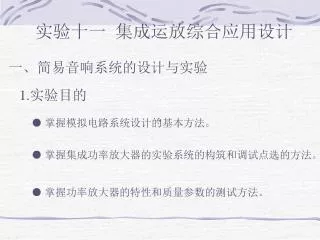 实验十一 集成运放综合应用设计
一、简易音响系统的设计与实验
1.实验目的
● 掌握模拟电路系统设计的基本方法。
● 掌握集成功率放大器的实验系统的构筑和调试点选的方法。
● 掌握功率放大器的特性和质量参数的测试方法。